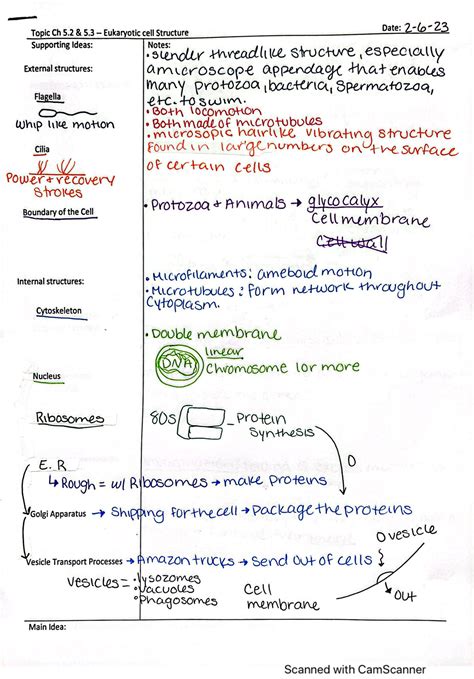 Topic Ch 5.2 & 5.3 – Eukaryotic cell Structure
Date: 2-6-23
Supporting Ideas:
Notes:
External structures:
Flagella
whip like motion
Cilia
Power + recovery
strokes
• slender threadlike structure, especially
a microscope appendage that enables
many protozoa, bacteria, spermatozoa,
etc. to swim.
• Both locomotion
• Both made of microtubules
• microsopic hairlike vibrating structure
found in large numbers on the surface
of certain cells
Boundary of the Cell
• Protozoa + Animals → glycocalyx
Cell membrane
Cell wall
Internal structures:
Cytoskeleton
• Microfilaments: ameboid motion
• Microtubules: form network throughout
Cytoplasm.
Nucleus
• Double membrane
DNA
linear
Chromosome 1 or more
Ribosomes
80s
Protein
Synthesis
E.R
↳ Rough = w/ Ribosomes → make proteins
Golgi Apparatus → Shipping for the cell → Package the proteins
Vesicle Transport Processes → Amazon trucks → Send out of cells
vesicle
Vesicles = • lysozomes
• vacuoles
• phagosomes
Cell
membrane
out
Main Idea:
Scanned with CamScanner